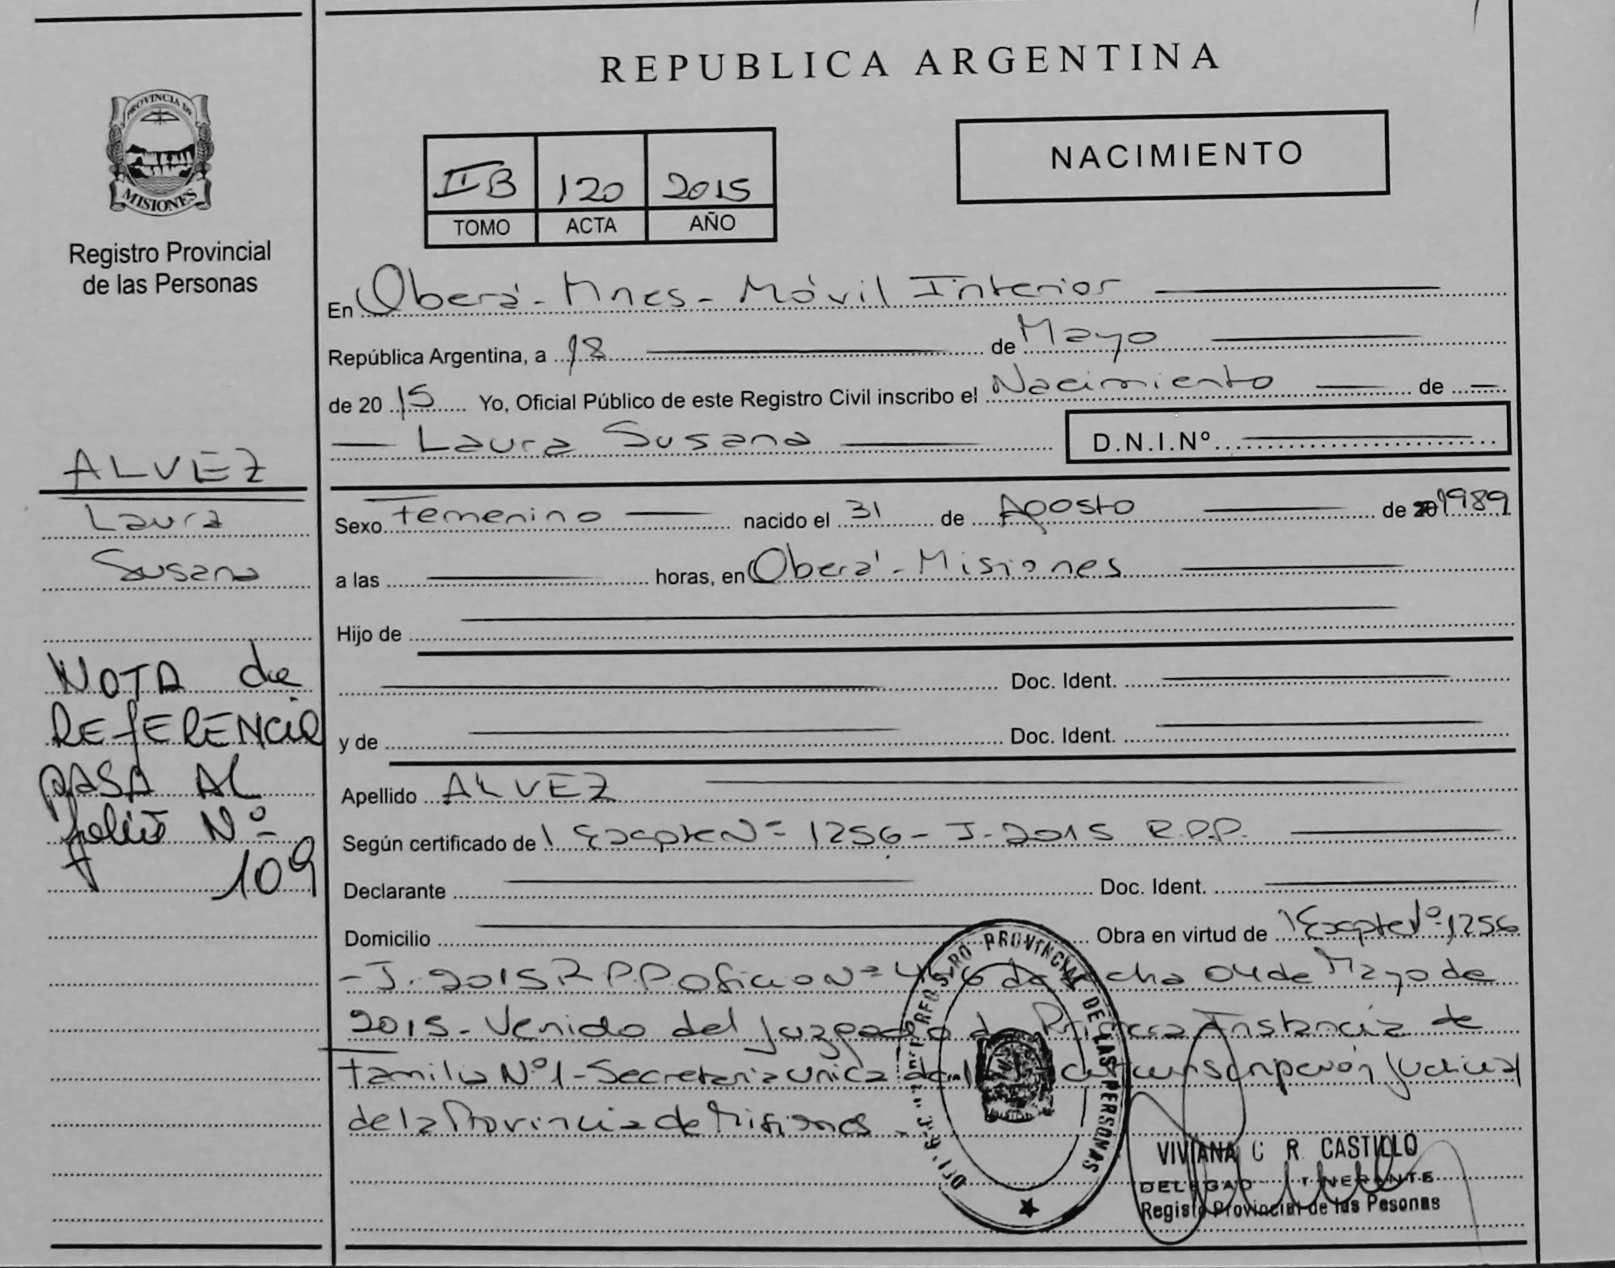 REPUBLICA ARGENTINA
NACIMIENTO
PROVINCIA DE
MISIONES
Registro Provincial
de las Personas
II B 120 2015
TOMO ACTA AÑO
En Oberá - Mnes - Móvil Interior
República Argentina, a 18 de Mayo
de 20 15 Yo, Oficial Público de este Registro Civil inscribo el Nacimiento de
Laura Susana D.N.I.Nº
ALVEZ
Laura
Susana
NOTA de
REFERENCIA
PASA AL
folio Nº
109
Sexo Femenino nacido el 31 de Agosto de 1989
a las horas, en Oberá - Misiones
Hijo de
Doc. Ident.
y de Doc. Ident.
Apellido ALVEZ
Según certificado de Expte Nº 1256 - J - 2015 R.P.P.
Declarante Doc. Ident.
Domicilio Obra en virtud de Expte Nº 1256
- J - 2015 R.P.P Oficio Nº de fecha 04 de Mayo de
2015 - Venido del Juzgado de Primera Instancia de
Familia Nº 1 - Secretaria Unica de la circunscripción Judicial
de la Provincia de Misiones.
REGISTRO PROVINCIAL DE LAS PERSONAS
VIVIANA C R. CASTILLO
DELEGADO ITINERANTE
Registo Provincial de las Pesonas